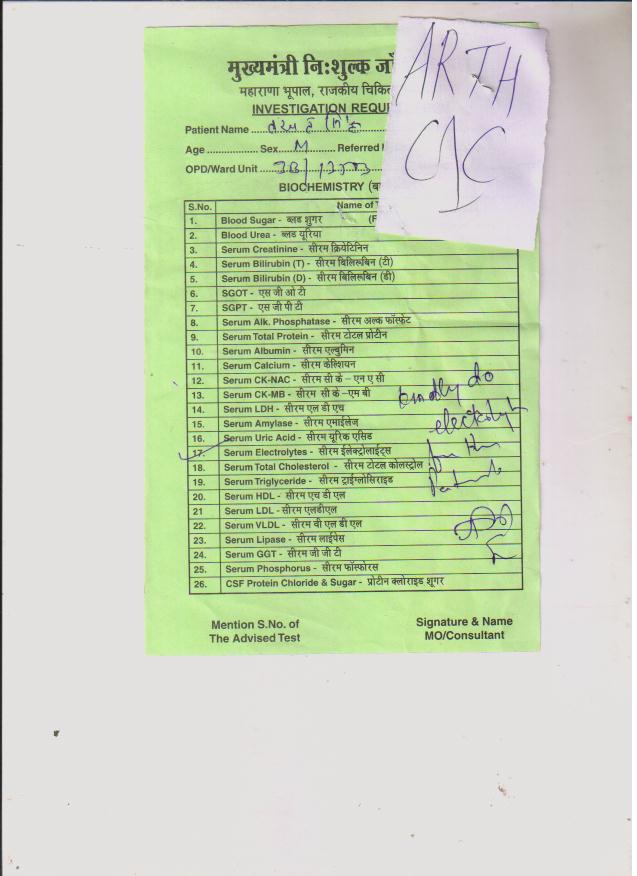 मुख्यमंत्री नि:शुल्क जाँ
महाराणा भूपाल, राजकीय चिकित
INVESTIGATION REQUE
Patient Name
Age Sex M Referred
OPD/Ward Unit
BIOCHEMISTRY
ARTH
CIC
S.No. Name of T
1. Blood Sugar - ब्लड शुगर (F
2. Blood Urea - ब्लड यूरिया
3. Serum Creatinine - सीरम क्रियेटिनिन
4. Serum Bilirubin (T) - सीरम बिलिरूबिन (टी)
5. Serum Bilirubin (D) - सीरम बिलिरूबिन (डी)
6. SGOT - एस जी ओ टी
7. SGPT - एस जी पी टी
8. Serum Alk. Phosphatase - सीरम अल्क फॉस्फेट
9. Serum Total Protein - सीरम टोटल प्रोटीन
10. Serum Albumin - सीरम एल्बुमिन
11. Serum Calcium - सीरम केल्शियन
12. Serum CK-NAC - सीरम सी के – एन ए सी
13. Serum CK-MB - सीरम सी के –एम बी
14. Serum LDH - सीरम एल डी एच
15. Serum Amylase - सीरम एमाईलेज
16. Serum Uric Acid - सीरम यूरिक एसिड
17. Serum Electrolytes - सीरम ईलेक्ट्रोलाईट्स
18. Serum Total Cholesterol - सीरम टोटल कोलस्ट्रोल
19. Serum Triglyceride - सीरम ट्राईग्लोसिराइड
20. Serum HDL - सीरम एच डी एल
21 Serum LDL - सीरम एलडीएल
22. Serum VLDL - सीरम वी एल डी एल
23. Serum Lipase - सीरम लाईपेस
24. Serum GGT - सीरम जी जी टी
25. Serum Phosphorus - सीरम फॉस्फोरस
26. CSF Protein Chloride & Sugar - प्रोटीन क्लोराइड शूगर
kindly do
Mention S.No. of
The Advised Test
Signature & Name
MO/Consultant